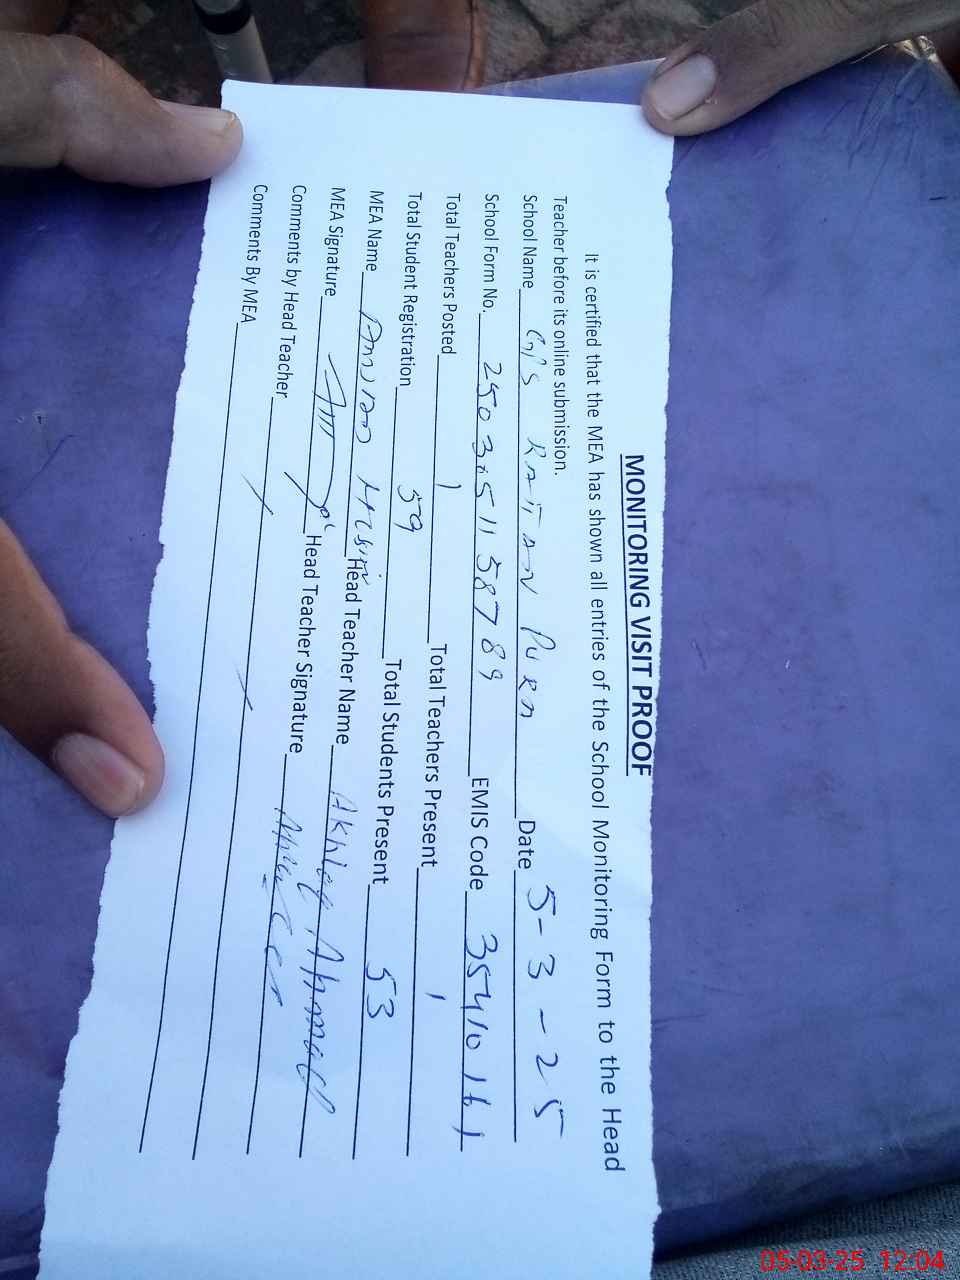 MONITORING VISIT PROOF
It is certified that the MEA has shown all entries of the School Monitoring Form to the Head
Teacher before its online submission.
School Name Pura Date 5-3-25
School Form No. EMIS Code 35410161
Total Teachers Posted 1 Total Teachers Present 1
Total Student Registration 59 Total Students Present 53
MEA Name Head Teacher Name Akhlaq Ahmad
MEA Signature Head Teacher Signature
Comments by Head Teacher
Comments By MEA
05-03-25 12:04